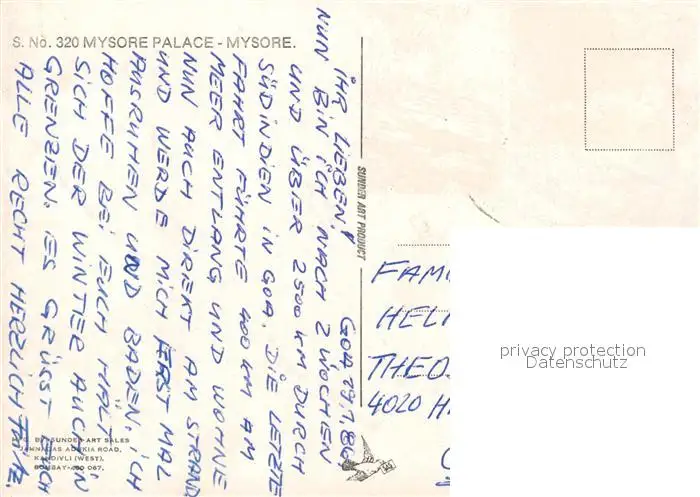 S. No. 320 MYSORE PALACE - MYSORE.
GOA 29.1.86
IHR LIEBEN!
NUN BIN ICH NACH 2 WOCHEN
UND ÜBER 2500 KM DURCH
SÜDINDIEN IN GOA. DIE LETZTE
FAHRT FÜHRTE 400 KM AM
MEER ENTLANG UND WOHNE
NUN AUCH DIREKT AM STRAND
UND WERDE MICH ERST MAL
AUSRUHEN UND BADEN. ICH
HOFFE BEI EUCH HÄLT
SICH DER WINTER AUCH IN
GRENZEN. ES GRÜSST EUCH
ALLE RECHT HERZLICH
SUNDER ART PRODUCT
FAMI
HEL
THEO
4020 H
privacy protection
Datenschutz
BY SUNDER ART SALES
ROAD,
KANDIVLI (WEST),
BOMBAY-400 067.